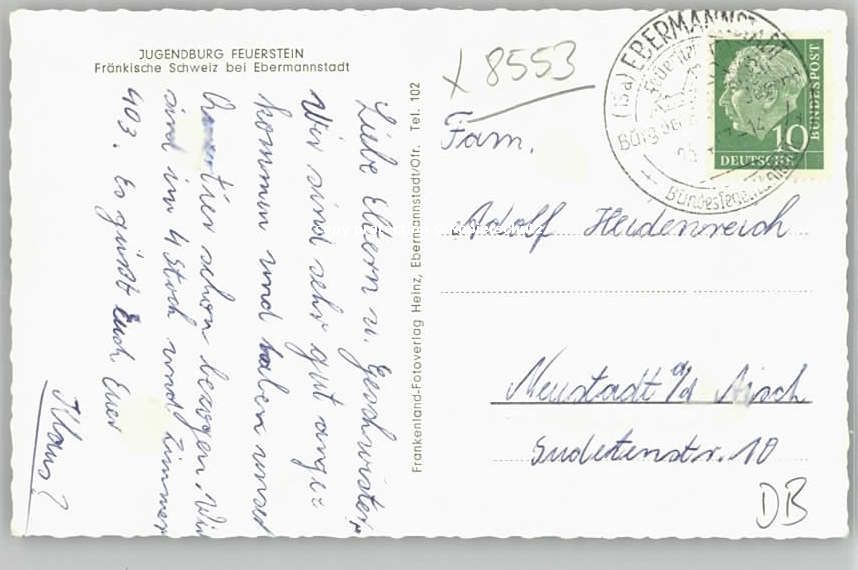 JUGENDBURG FEUERSTEIN
Fränkische Schweiz bei Ebermannstadt
Liebe Eltern u. Geschwister,
Wir sind sehr gut ange=
kommen und haben unser
Quartier schon bezogen. Wir
sind im 4 Stock und Zimmer
403. Es grüßt Euch Euer
Klaus
Frankenland-Fotoverlag Heinz, Ebermannstadt/Ofr. Tel. 102
x 8553
(13a) EBERMANNSTADT
10
DEUTSCHE
BUNDESPOST
Fam.
Adolf Heidenreich
Neustadt a/d Aisch
Sudetenstr. 10
DB